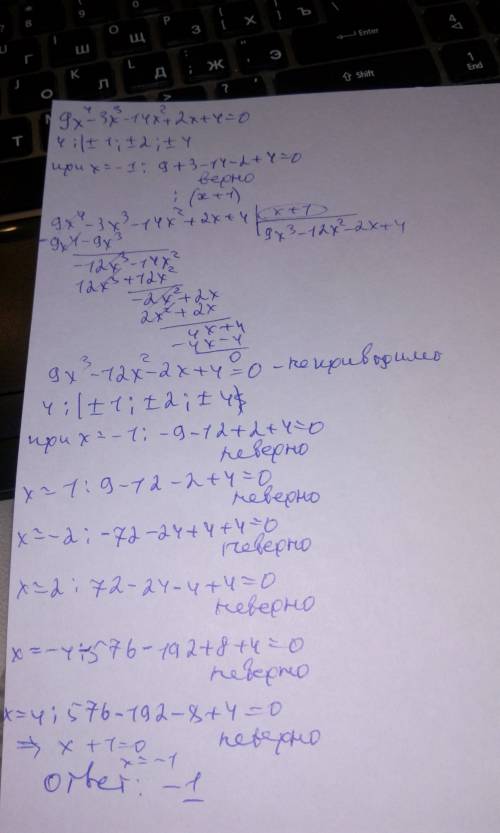 9x⁴-3x³-14x²+2x+4=0
4 ; {±1; ±2; ±4
при x=-1; 9+3-14-2+4=0
верно
: (x+1)
9x⁴-3x³-14x²+2x+4 | x+1
-9x⁴-9x³ | 9x³-12x²-2x+4
-12x³-14x²
12x³+12x²
-2x²+2x
2x²+2x
4x+4
-4x-4
0
9x³-12x²-2x+4=0 - неприводимо
4 ; {±1; ±2; ±4}
при x=-1; -9-12+2+4=0
неверно
x=1: 9-12-2+4=0
неверно
x=-2; -72-24+4+4=0
неверно
x=2; 72-24-4+4=0
неверно
x=-4; -576-192+8+4=0
неверно
x=4; 576-192-8+4=0
неверно
=> x+1=0
x=-1
ответ: -1
Enter
Shift
End